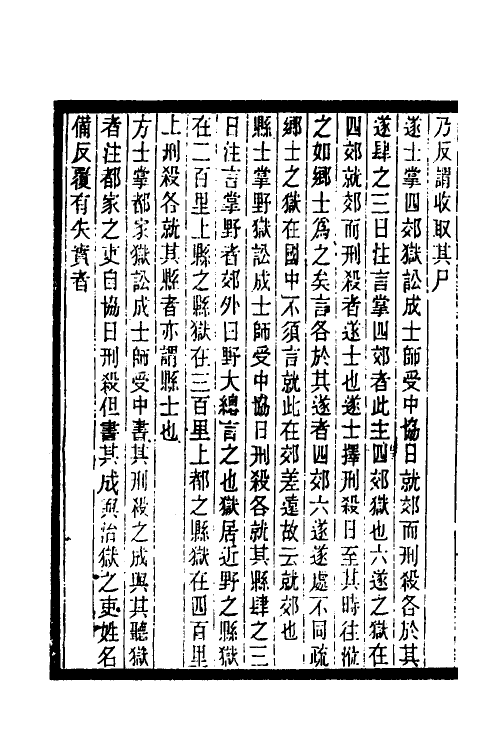 乃反謂收取其尸
遂士掌四郊獄訟成士師受中協日就郊而刑殺各於其
遂肆之三日注言掌四郊者此主四郊獄也六遂之獄在
四郊就郊而刑殺者遂士也遂士擇刑殺日至其時往涖
之如鄉士爲之矣言各於其遂者四郊六遂遂處不同疏
鄉士之獄在國中不須言就此在郊差遠故云就郊也
縣士掌野獄訟成士師受中協日刑殺各就其縣肆之三
日注言掌野者郊外曰野大總言之也獄居近野之縣獄
在二百里上縣之縣獄在三百里上都之縣獄在四百里
上刑殺各就其縣者亦謂縣士也
方士掌都家獄訟成士師受中書其刑殺之成與其聽獄
者注都家之吏自協日刑殺但書其成與治獄之吏姓名
備反覆有失實者